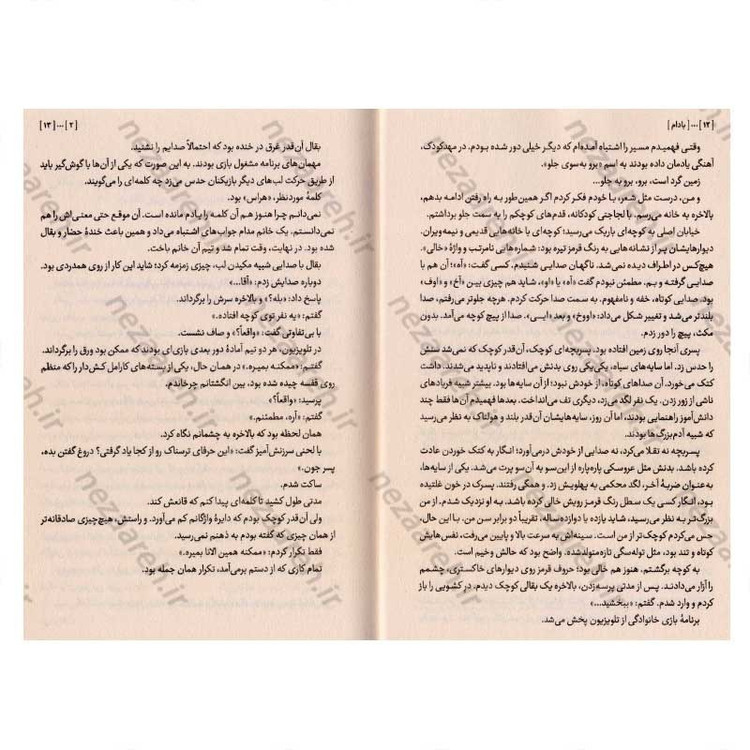 [ ۱۲ ] ... [ بادام ]
وقتی فهمیدم مسیر را اشتباه آمده‌ام که دیگر خیلی دور شده بودم. در مهدکودک،
آهنگی یادمان داده بودند به اسم «برو به‌سوی جلو».
زمین گرد است، برو، برو به جلو...
و من، درست مثل شعر، با خودم فکر کردم اگر همین‌طور به راه رفتن ادامه بدهم،
بالاخره به خانه می‌رسم. با لجاجتی کودکانه، قدم‌های کوچکم را به سمت جلو برداشتم.
خیابان اصلی به کوچه‌ای باریک می‌رسید؛ کوچه‌ای با خانه‌هایی قدیمی و نیمه‌ویران.
دیوارهایشان پر از نشانه هایی به رنگ قرمز تیره بود: شماره‌هایی نامرتب و واژۀ «خالی».
هیچ‌کس در اطراف دیده نمی‌شد. ناگهان صدایی شنیدم. کسی گفت: «آه»؛ آن هم با
صدایی گرفته و بم. مطمئن نبودم گفت «آه» یا «او»، شاید هم چیزی بین «آخ» و «اوف»
بود. صدایی کوتاه، خفه و نامفهوم. به سمت صدا حرکت کردم. هرچه جلوتر می‌رفتم، صدا
بلندتر می‌شد و تغییر شکل می‌داد: «اووخ» و بعد «ایــی». صدا از پیچ کوچه می‌آمد. بدون
مکث، پیچ را دور زدم.
پسری آنجا روی زمین افتاده بود. پسربچه‌ای کوچک، آن‌قدر کوچک که نمی‌شد سنش
را حدس زد. اما سایه‌های سیاه، یکی‌یکی روی بدنش می‌افتادند و ناپدید می‌شدند. داشت
کتک می‌خورد. آن صداهای کوتاه، از خودش نبود؛ از آن سایه‌ها بود. بیشتر شبیه فریادهای
ناشی از زور زدن. یک نفر لگد می‌زد، دیگری تف می‌انداخت. بعدها فهمیدم آن‌ها فقط چند
دانش‌آموز راهنمایی بودند، اما آن روز، سایه‌هایشان آن‌قدر بلند و هولناک به نظر می‌رسید
که شبیه آدم‌بزرگ‌ها بودند.
پسربچه نه تقلا می‌کرد، نه صدایی از خودش درمی‌آورد؛ انگار به کتک خوردن عادت
کرده باشد. بدنش مثل عروسکی پاره‌پاره از این‌سو به آن‌سو پرت می‌شد. یکی از سایه‌ها،
به‌عنوان ضربۀ آخر، لگد محکمی به پهلویش زد، و همگی رفتند. پسرک در خون غلتیده
بود، انگار کسی یک سطل رنگ قرمز رویش خالی کرده باشد. به او نزدیک شدم. از من
بزرگ‌تر به نظر می‌رسید، شاید یازده یا دوازده ساله، تقریباً دو برابر سن من. با این حال،
حس می‌کردم کوچک‌تر از من است. سینه‌اش به سرعت بالا و پایین می‌رفت، نفس‌هایش
کوتاه و تند بود، مثل توله‌سگی تازه‌متولدشده. واضح بود که حالش وخیم است.
به کوچه برگشتم. هنوز هم خالی بود؛ حروف قرمز روی دیوارهای خاکستری، چشمم
را آزار می‌دادند. پس از مدتی پرسه‌زدن، بالاخره یک بقالی کوچک دیدم. در کشویی را باز
کردم و وارد شدم. گفتم: «ببخشید...»
برنامۀ بازی خانوادگی از تلویزیون پخش می‌شد.
[ ۲ ] ... [ ۱۳ ]
بقال آن‌قدر غرق در خنده بود که احتمالاً صدایم را نشنید.
مهمان‌های برنامه مشغول بازی بودند. به این صورت که یکی از آن‌ها با گوش‌گیر باید
از طریق حرکت لب‌های دیگر بازیکنان حدس می‌زد چه کلمه‌ای را می‌گویند.
کلمۀ موردنظر، «هراس» بود.
نمی‌دانم چرا هنوز هم آن کلمه را یادم مانده است. آن موقع حتی معنی‌اش را هم
نمی‌دانستم. یک خانم مدام جواب‌های اشتباه می‌داد و همین باعث خندۀ حضار و بقال
شده بود. در نهایت، وقت تمام شد و تیم آن خانم باخت.
بقال با صدایی شبیه مکیدن لب، چیزی زمزمه کرد؛ شاید این کار از روی همدردی بود.
دوباره صدایش زدم: «آقا...»
پاسخ داد: «بله؟» و بالاخره سرش را برگرداند.
گفتم: «یه نفر توی کوچه افتاده.»
با بی‌تفاوتی گفت: «واقعاً؟» و صاف نشست.
در تلویزیون، هر دو تیم آمادۀ دور بعدی بازی‌ای بودند که ممکن بود ورق را برگرداند.
گفتم: «ممکنه بمیره.» در همان حال، یکی از بسته‌های کارامل کش‌دار را که منظم
روی قفسه چیده شده بود، بین انگشتانم چرخاندم.
پرسید: «واقعاً؟»
گفتم: «آره، مطمئنم.»
همان لحظه بود که بالاخره به چشمانم نگاه کرد.
با لحنی سرزنش‌آمیز گفت: «این حرفای ترسناک رو از کجا یاد گرفتی؟ دروغ گفتن بده،
پسر جون.»
ساکت شدم.
مدتی طول کشید تا کلمه‌ای پیدا کنم که قانعش کند.
ولی آن‌قدر کوچک بودم که دایرۀ واژگانم کم می‌آورد. و راستش، هیچ‌چیزی صادقانه‌تر
از همان چیزی که گفته بودم به ذهنم نمی‌رسید.
فقط تکرار کردم: «ممکنه همین الانا بمیره.»
تمام کاری که از دستم برمی‌آمد، تکرار همان جمله بود.
nezaareh.ir